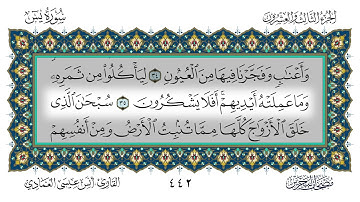 الجزء الثالث والعشرون
سورة يس
وَأَعْنَٰبٍ وَفَجَّرْنَا فِيهَا مِنَ ٱلْعُيُونِ ٣٤ لِيَأْكُلُوا۟ مِن ثَمَرِهِۦ
وَمَا عَمِلَتْهُ أَيْدِيهِمْ ۖ أَفَلَا يَشْكُرُونَ ٣٥ سُبْحَٰنَ ٱلَّذِى
خَلَقَ ٱلْأَزْوَٰجَ كُلَّهَا مِمَّا تُنۢبِتُ ٱلْأَرْضُ وَمِنْ أَنفُسِهِمْ
٤٤٢
القارئ: أنس عيسى العمادي